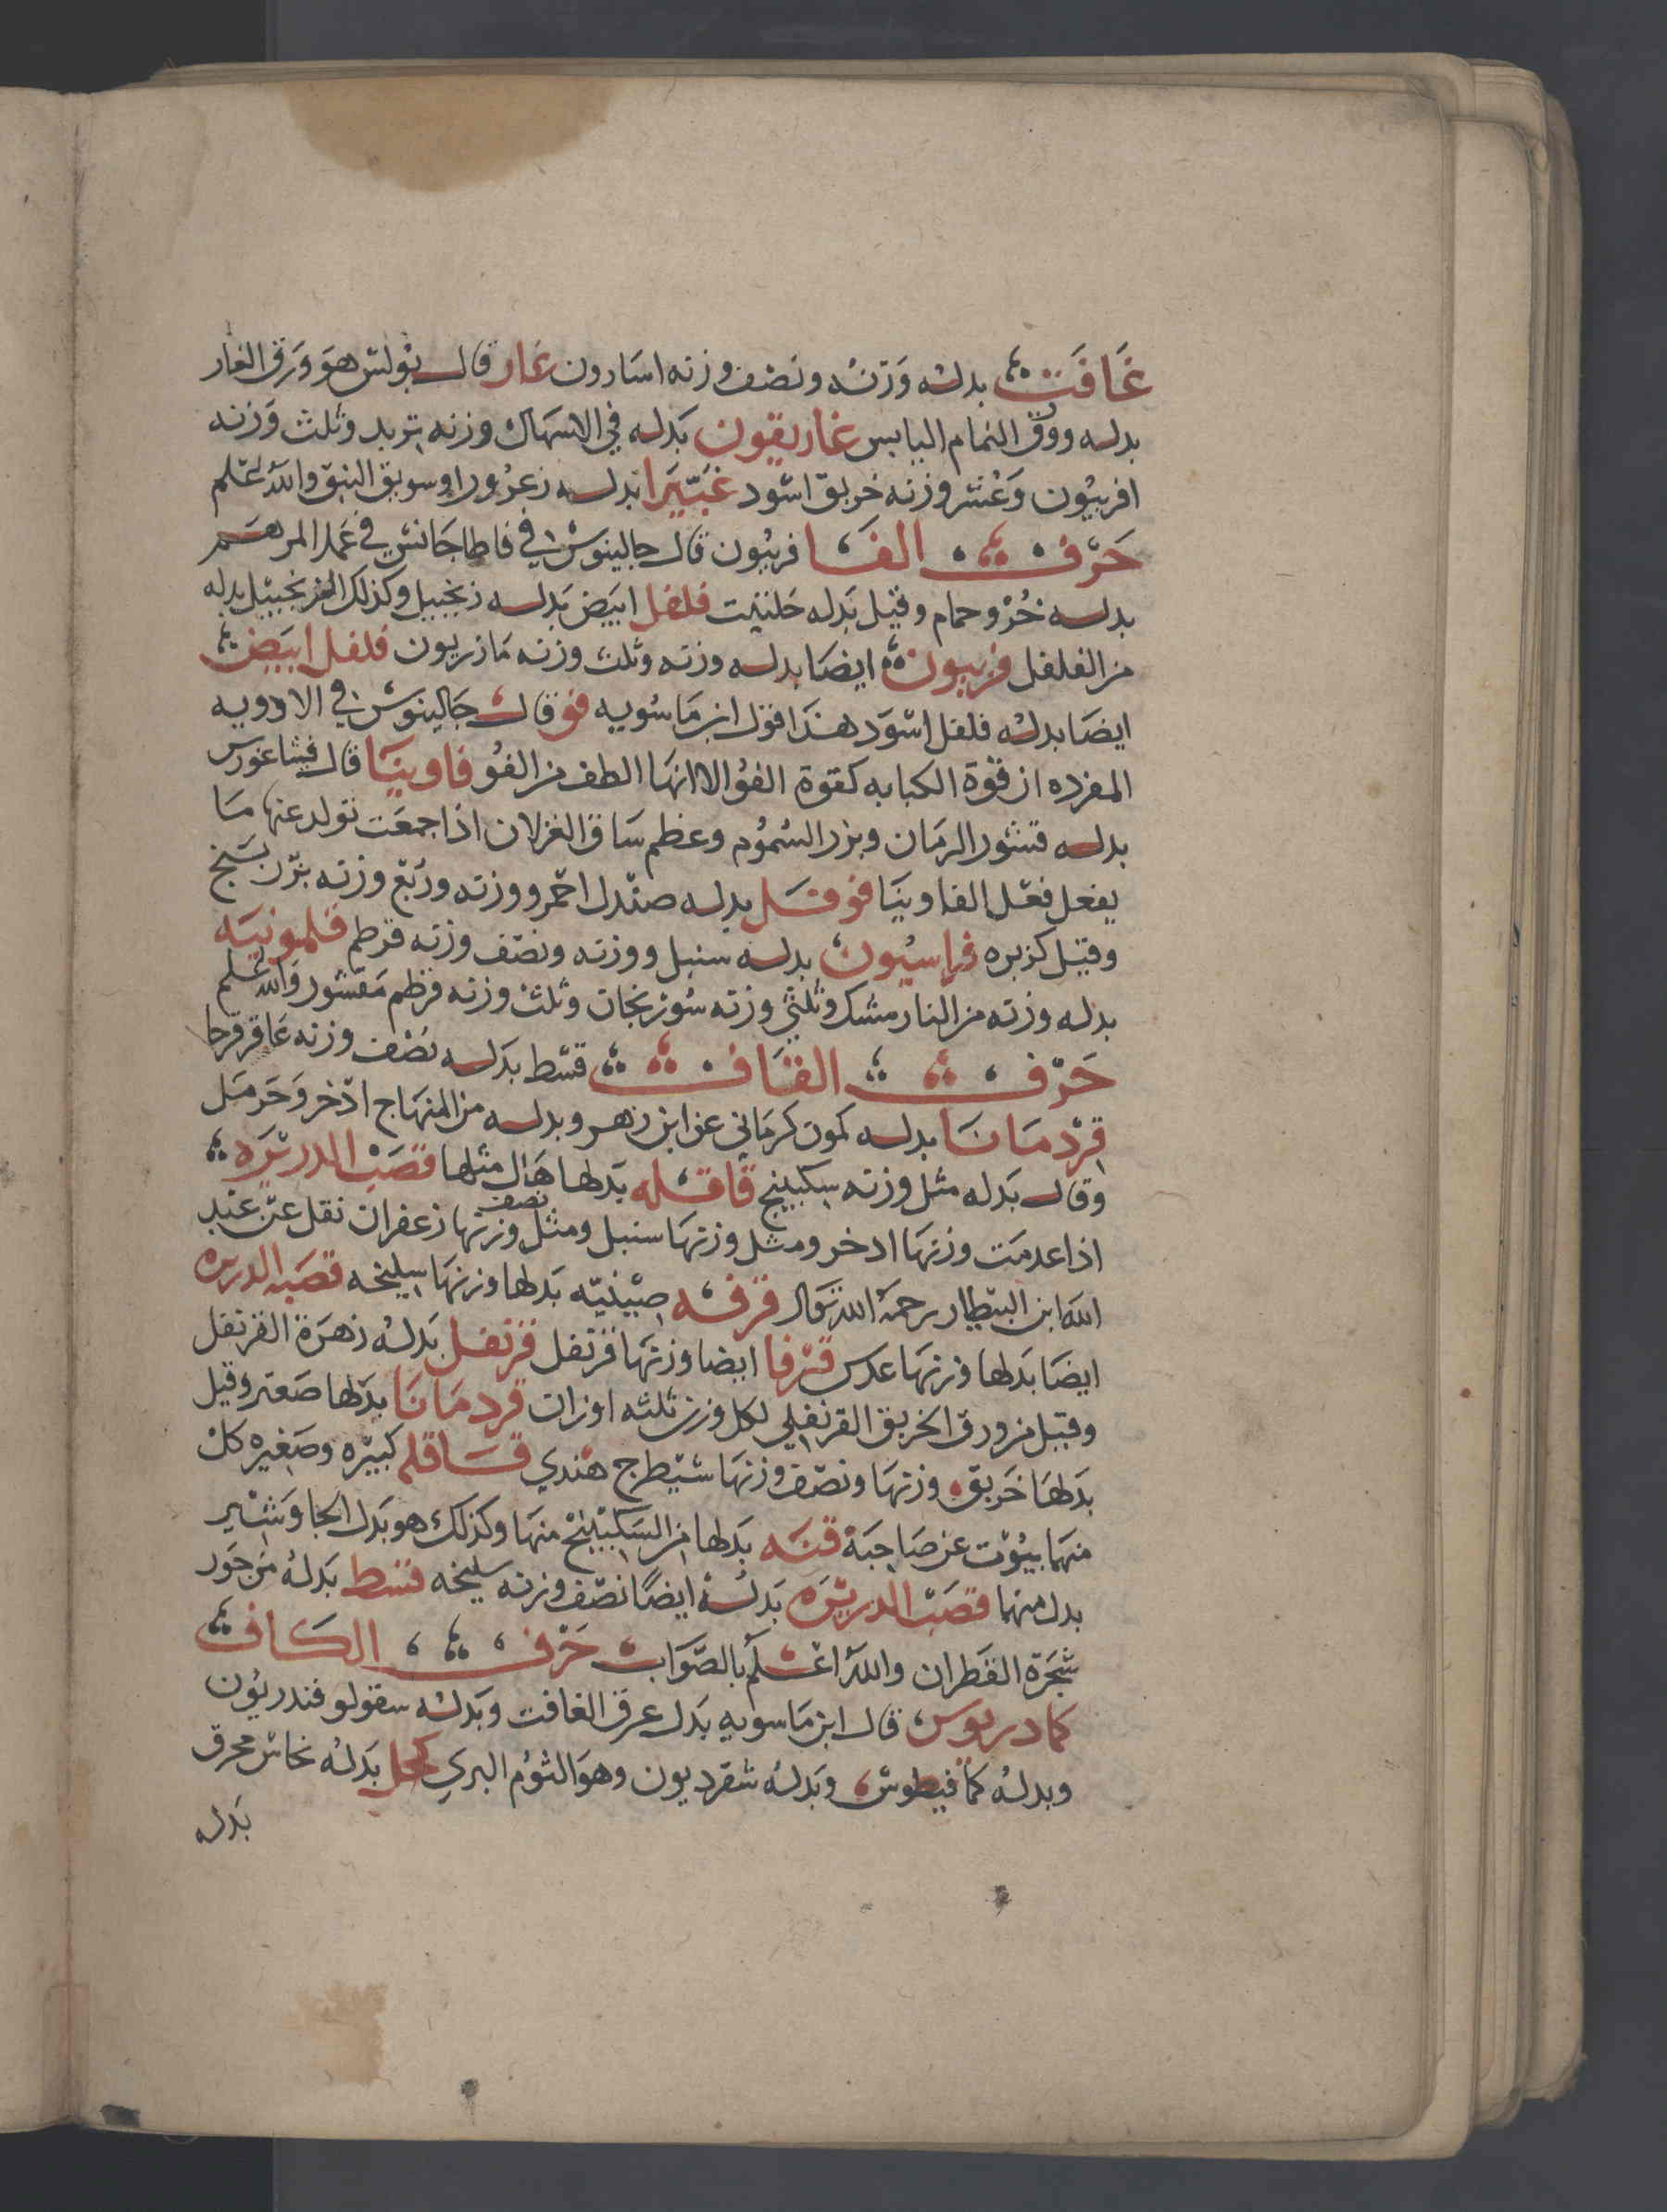 غَافَت بدله وَزنه ونصف وزنه اسارون غار قال بولس هو ورق الغار
بدله وورق النمام اليابس غاريقون بَدله في الاسهال وزنه تربد وثلث وَزنه
افربيون وَعُشر وزنه خربق اسود غُبَيّرَا بدله زعرورا وسويق النبق والله اعلم
حَرْف الفَا فربيون قال جالينوس في قاطاجانس في عمل المرهم
بدله خُرْو حمام وقيل بَدله حلتيت فلفل ابيض بَدله زنجبيل وكذلك الزنجبيل بدله
من الفلفل فربيون ايضا بدله وزنه وثلث وزنه مازريون فلفل ابيَض
ايضَا بدله فلفل اسْوَد هذا قول ابن مَاسُويه فو قال جَالينوس في الادويه
المفرده ان قوة الكبابه كقوة الفوُ الا انها الطف من الفو فاوينيَا قال فيثاغورس
بدله قشور الرمان وبزر السُموُم وعظم ساق الغزلان اذا جمعَت تولد عنها مَا
يفعل فعْل الفاوينَيا فوفل بدله صندل احمر ووزنه ورُبع وزنه بزر بنج
وقيل كزبره فراسيُون بدله سنبل ووزنه ونصف وزنه قرطم قلمونيَه
بدله وزنه من النارمشك وثلثي وزنه سُورنجان وثلث وزنه قرطم مَقشور والله اعلم
حَرْف القَاف قسْط بَدله نصْف وزنه عَاقرقرحا
قرْدمَانَا بدله كمون كرمَاني عن ابن زهر وبدله من المنهاج اذخر وَحَرمَل
وقال بَدله مثل وزنه سكبينج قَاقله بَدلها هَال مثلها قصَبْ الدريْرَه
اذا عدمَت وزنها اذخر ومثل وزنهَا سنبل ومثل نصف وزنها زعفران نقل عَن عَبد
الله ابن البيطار رحمَه الله تعَال قرفه صيْنيّه بَدلها وزنهَا سليخه قصبة الدريره
ايضَا بَدلها وزنهَا عدس قرفا ايضا وزنهَا قرنفل قرنفل بَدله زهرَة القرنفل
وقيل من ورق الخربق القرنفلي لكل وزن ثلثه اوزان قردمَانَا بدَلها صَعتر وقيل
بَدلهَا خَربق وزنهَا ونصف وزنهَا شيْطرج هندي قَاقله كبيْره وصَغيره كل
منهما ينوْب عن صَاحبَة قنَه بَدلها من السَكبيْنج منهَا وكذلك هو بَدل الجاوَشيْر
بدل منهما قصَبْ الدريرَه بَدله ايضًا نصف وزنه سليخه قسط بَدله من جَور
شجَرة القطران والله اعلَم بالصوَاب حَرْف الكاف
كمادريوس قال ابن مَاسويه بَدل عرق الغافت وبَدله سقولوفندريوُن
وبدله كمافيطوس وبَدله شقرديون وهوَ الثوُم البري كحل بَدله نحاس محرق
بَدله